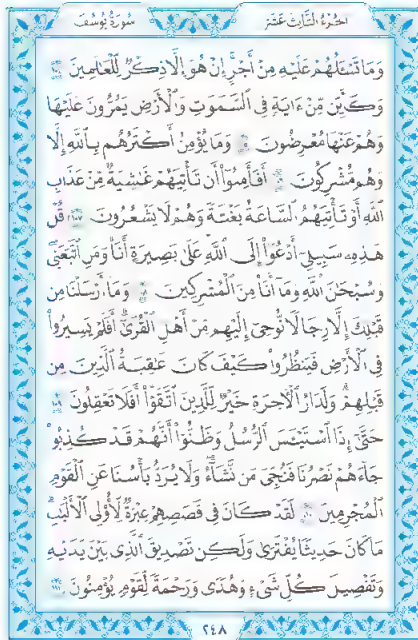 الجزء الثالث عشر
سورة يوسف
وَمَا تَسْـَٔلُهُمْ عَلَيْهِ مِنْ أَجْرٍ إِنْ هُوَ إِلَّا ذِكْرٌ لِّلْعَٰلَمِينَ ١٠٤
وَكَأَيِّن مِّنْ ءَايَةٍ فِى ٱلسَّمَٰوَٰتِ وَٱلْأَرْضِ يَمُرُّونَ عَلَيْهَا
وَهُمْ عَنْهَا مُعْرِضُونَ ١٠٥ وَمَا يُؤْمِنُ أَكْثَرُهُم بِٱللَّهِ إِلَّا
وَهُم مُّشْرِكُونَ ١٠٦ أَفَأَمِنُوٓا۟ أَن تَأْتِيَهُمْ غَٰشِيَةٌ مِّنْ عَذَابِ
ٱللَّهِ أَوْ تَأْتِيَهُمُ ٱلسَّاعَةُ بَغْتَةً وَهُمْ لَا يَشْعُرُونَ ١٠٧ قُلْ
هَٰذِهِۦ سَبِيلِىٓ أَدْعُوٓا۟ إِلَى ٱللَّهِ عَلَىٰ بَصِيرَةٍ أَنَا۠ وَمَنِ ٱتَّبَعَنِى
وَسُبْحَٰنَ ٱللَّهِ وَمَآ أَنَا۠ مِنَ ٱلْمُشْرِكِينَ ١٠٨ وَمَآ أَرْسَلْنَا مِن
قَبْلِكَ إِلَّا رِجَالًا نُّوحِىٓ إِلَيْهِم مِّنْ أَهْلِ ٱلْقُرَىٰٓ أَفَلَمْ يَسِيرُوا۟
فِى ٱلْأَرْضِ فَيَنظُرُوا۟ كَيْفَ كَانَ عَٰقِبَةُ ٱلَّذِينَ مِن
قَبْلِهِمْ وَلَدَارُ ٱلْـَٔاخِرَةِ خَيْرٌ لِّلَّذِينَ ٱتَّقَوْا۟ أَفَلَا تَعْقِلُونَ ١٠٩
حَتَّىٰٓ إِذَا ٱسْتَيْـَٔسَ ٱلرُّسُلُ وَظَنُّوٓا۟ أَنَّهُمْ قَدْ كُذِبُوا۟
جَآءَهُمْ نَصْرُنَا فَنُجِّىَ مَن نَّشَآءُ وَلَا يُرَدُّ بَأْسُنَا عَنِ ٱلْقَوْمِ
ٱلْمُجْرِمِينَ ١١٠ لَقَدْ كَانَ فِى قَصَصِهِمْ عِبْرَةٌ لِّأُو۟لِى ٱلْأَلْبَٰبِ
مَا كَانَ حَدِيثًا يُفْتَرَىٰ وَلَٰكِن تَصْدِيقَ ٱلَّذِى بَيْنَ يَدَيْهِ
وَتَفْصِيلَ كُلِّ شَىْءٍ وَهُدًى وَرَحْمَةً لِّقَوْمٍ يُؤْمِنُونَ ١١١
٢٤٨